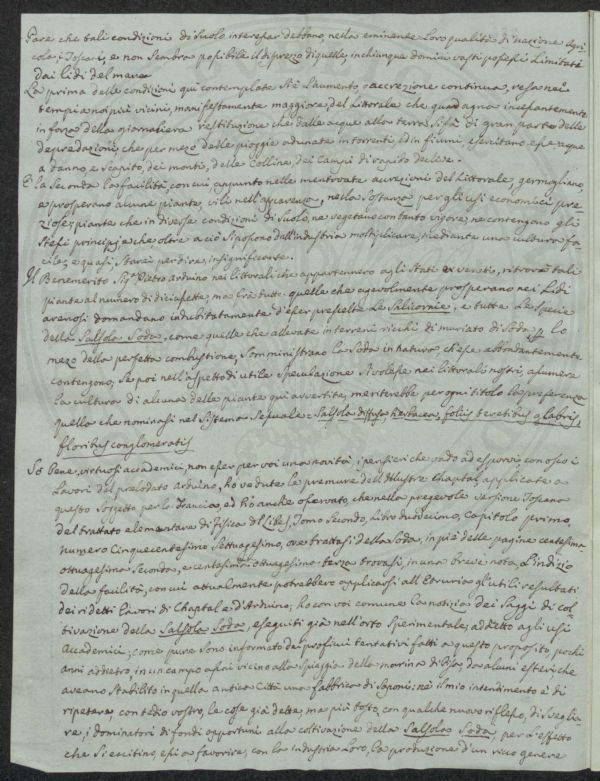 Pare che tali condizioni di suolo interessar debbano, nella eminente Loro qualità di nazione Agri-
cola, i Toscani, e non sembra possibile il disprezzo di quelle, in chiunque domini vasti possessi limitati
dai lidi del mare
La prima delle condizioni qui contemplate si è l'aumento, o accrezione continua, resa nei
tempi a noi più vicini, manifestamente maggiore, del Littorale che guadagna incessantemente
in forza della giornaliera restituzione che dalle acque alla terra si fà di gran parte delle
depredazioni, che per mezo dalle pioggie adunate in torrenti, ed in fiumi, esercitano esse acque
a danno, e scapito, dei monti, delle Colline, dei Campi di rapido declive.
È la seconda la facilità, con cui appunto nelle mentovate accrezioni del Littorale, germogliano,
e prosperano alcune piante, vili nell'apparenza, nella sostanza per gli usi economici pre-
ziose; piante che in diverse condizioni di suolo, ne vegetano con tanto vigore, ne contengono gli
stessi principj, e che oltre a ciò si possono dall'industria moltiplicare, mediante una cultura fa-
cile, e quasi, starei per dire, insignificante.
Il Benemerito Sigr. Pietro Arduino nei littorali che appartennero agli Stati ex veneti, ritrovò tali
piante al numero di diciasette, ma trà tutte quelle che agevolmente prosperano nei Lidi
arenosi domandano indubitatamente d'esser prescelte Le Salicornie, e tutte Le specie
della Salsola Soda, come quelle che allevate in terreni ricchi di muriato di Soda, per lo
mezo della perfetta combustione, somministrano la Soda in natura ch'esse abbondantemente
contengono, Se poi nell'aspetto di utile speculazione si volesse nei littorali nostri, assumere
la cultura di alcuna delle piante qui avvertite, meriterebbe per ogni titolo la preferenza
quella che nominasi nel sistema sessuale = Salsola diffusa, herbacea, foliis teretibus glabris,
floribus conglomeratis
So bene, virtuosi accademici, non esser per voi una novità i pensieri che vado ad esporvi conosco i
Lavori del prelodato Arduino, hò vedute le premure dell'Illustre Chaptal applicate a
questo soggetto per la Francia, ed hò anche osservato, che nella pregevole versione Toscana
del trattato elementare di Fisica di Libes, Tomo Secondo, Libro duodecimo, Capitolo primo,
numero Cinquecentesimo Settuagesimo, ove trattasi della Soda, in piè delle pagine centesima
ottuagesima Seconda, e centesima ottuagesima terza trovasi, in una breve nota, L'indizio
della facilità, con cui attualmente potrebbero applicarsi all'Etruria gli utili resultati
dei ridetti Lavori di Chaptal e d'Arduino; hò con voi comune la notizia dei saggi di col-
tivazione della Salsola Soda, eseguiti già nell'orto sperimentale, addetto agli usi
Accademici; come pure sono informato dei proficui tentativi fatti a questo proposito, pochi
anni addietro, in un campo assai vicino alla spiaggia della marina di Pisa, da alcuni esteri che
aveano stabilito in quella antica Città una fabbrica di Saponi; nè il mio intendimento è di
ripetere, con tedio vostro, le cose già dette, ma più tosto, con qualche nuovo riflesso, di sveglia-
re, i dominatori di fondi opportuni alla coltivazione della Salsola Soda, per l'effetto
che si eccitino, essi a favorire, con la industria Loro, la produzione d'un ricco genere